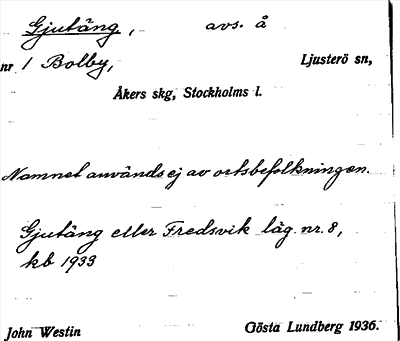 Gjutäng, avs. å
nr 1 Bolby, Ljusterö sn,
Åkers skg, Stockholms l.
Namnet användes ej av ortsbefolkningen.
Gjutäng eller Fredsvik läg. nr. 8,
kb 1933
John Westin Gösta Lundberg 1936.